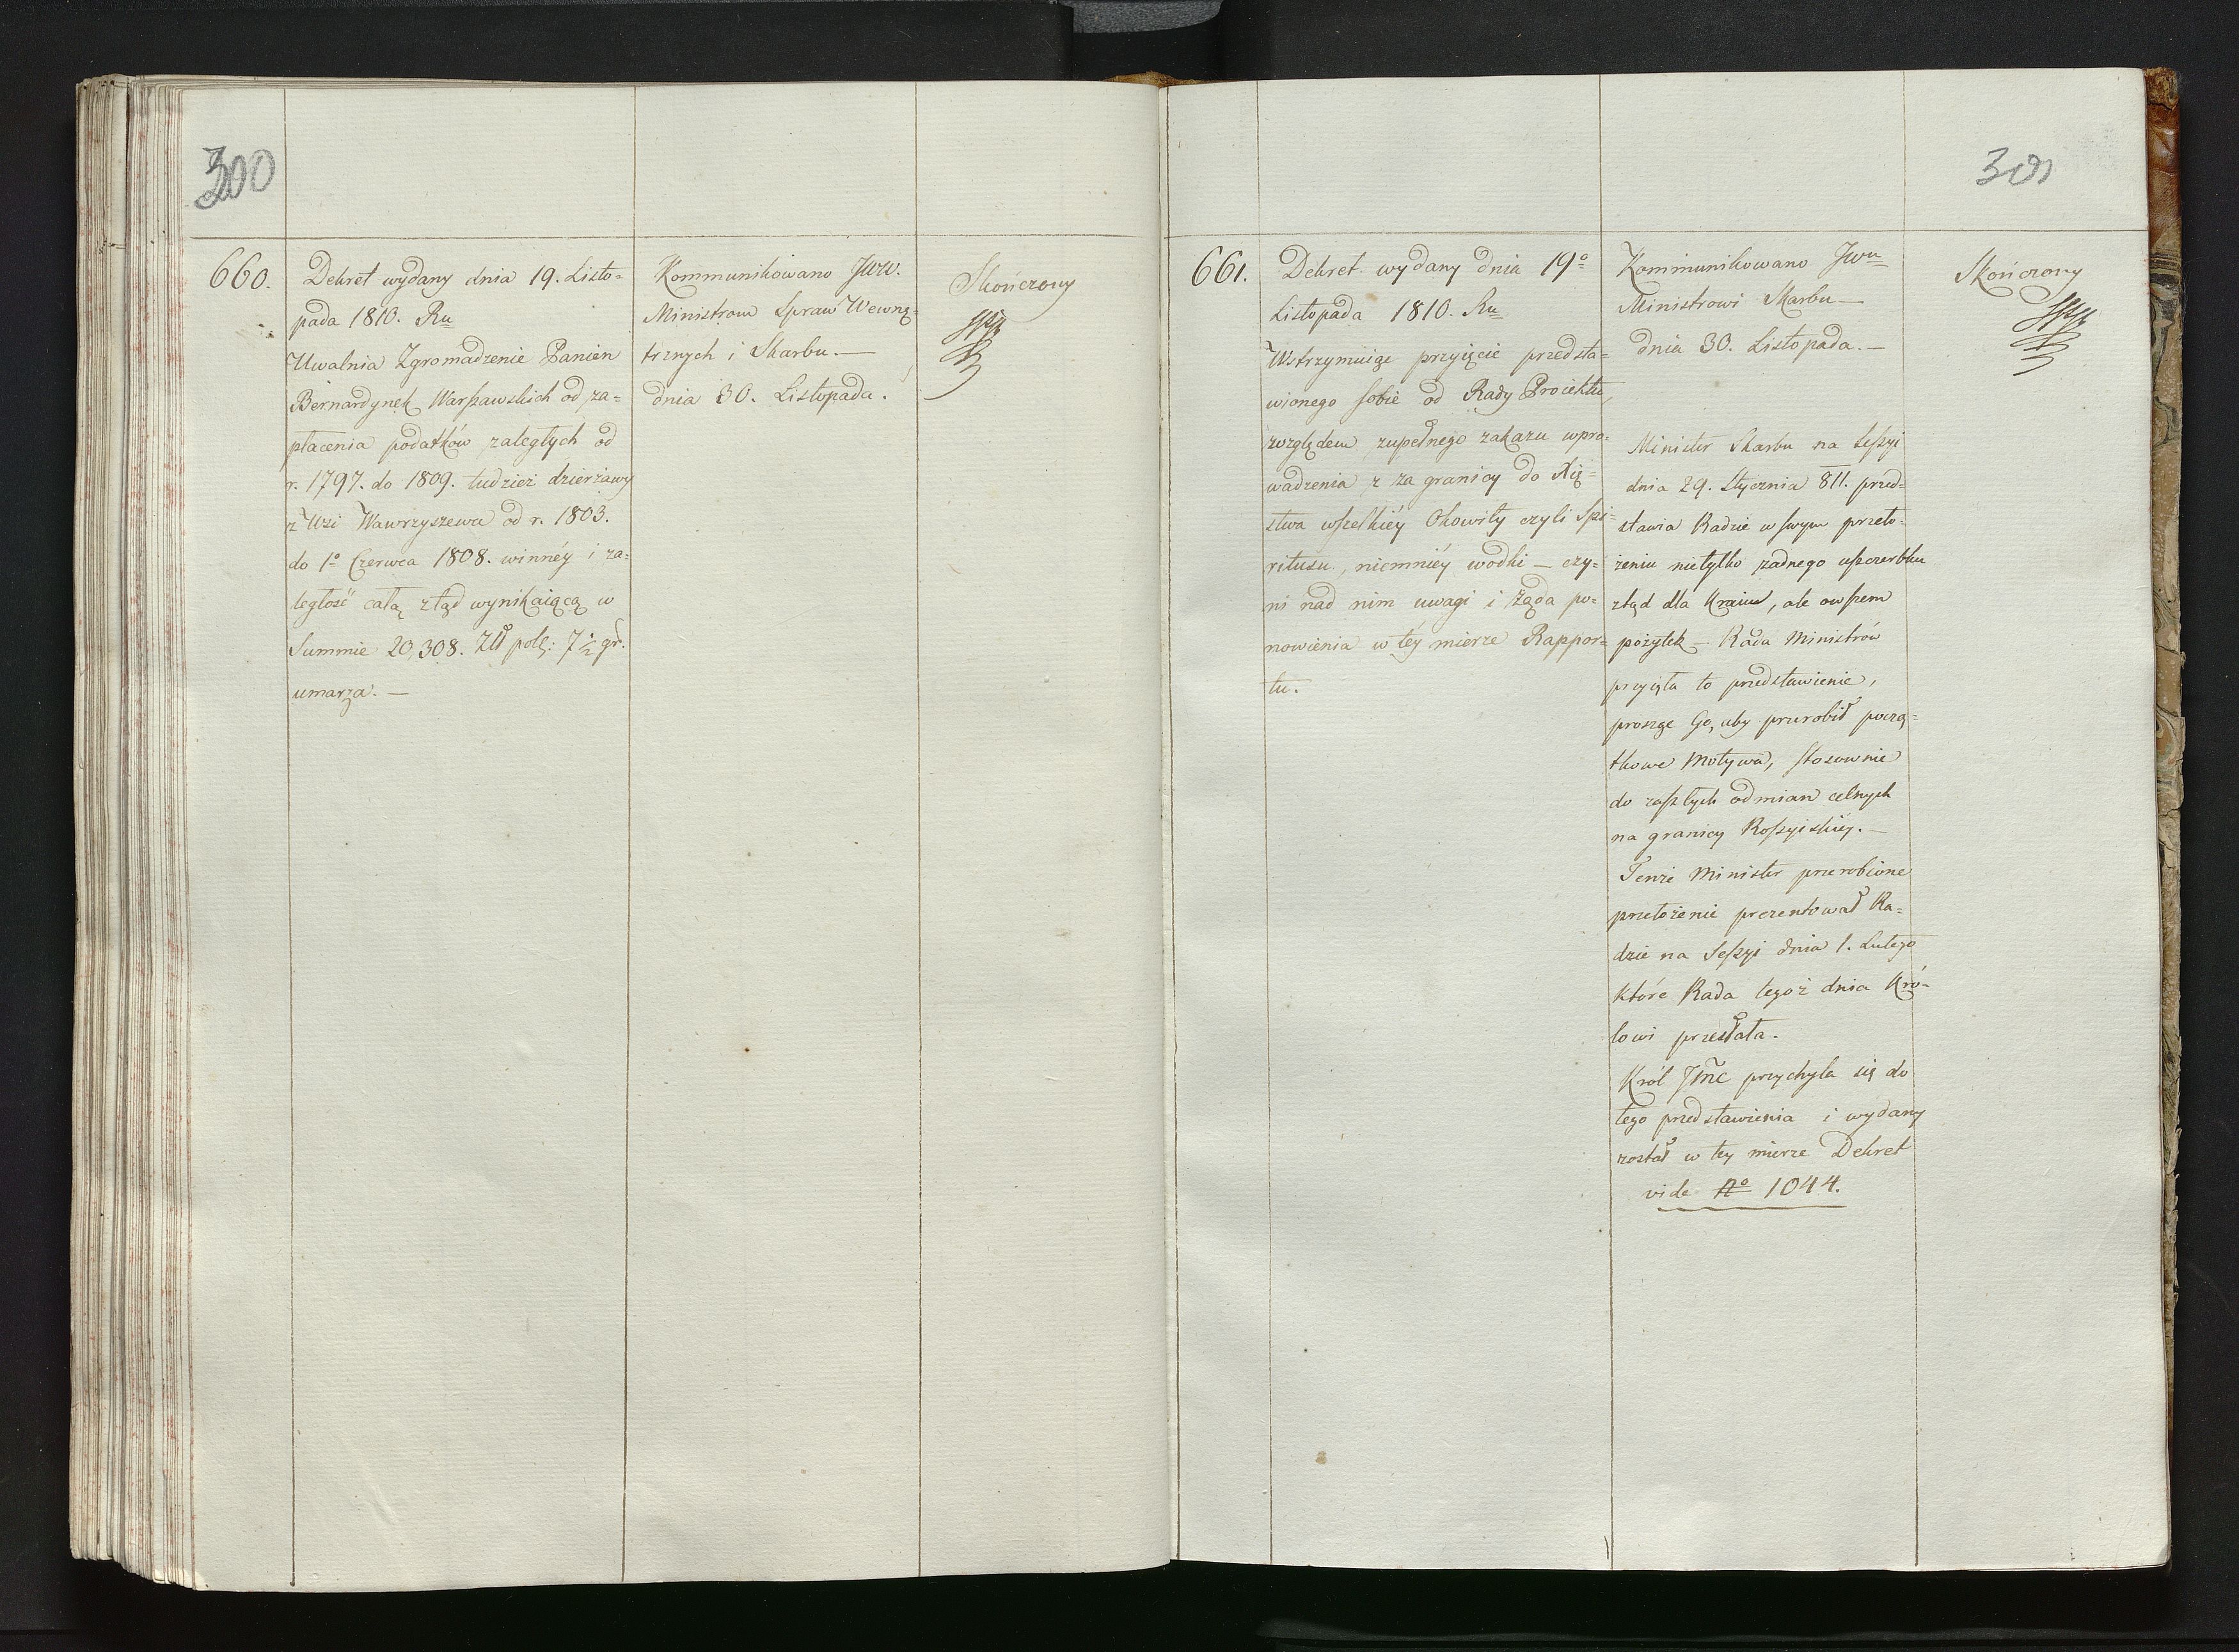 300
660.
Dekret wydany dnia 19. Listo=
pada 1810. Ru
Uwalnia Zgromadzenie Panien
Bernardynek Warszawskich od za=
płacenia podatków zaległych od
r. 1797. do 1809. tudzież dzierżawy
z Wsi Wawrzyszewa od r. 1803.
do 1o Czerwca 1808. winnéy i za=
ległość całą ztąd wynikaiącą w
Summie 20,308. Złł pols: 7 1/2 gr.
umarza. —
Kommunikowano JWW.
Ministrom Spraw Wewnę=
trznych i Skarbu. —
dnia 30. Listopada.
Skończony
301
661.
Dekret wydany dnia 19o
Listopada 1810. Ru
Wstrzymuiąc przyięcie przedsta=
wionego sobie od Rady Proiektu,
względem zupełnego zakazu wpro=
wadzenia z za granicy do Xię=
stwa wszelkiéy Okowity czyli Spi=
ritusu, niemniéy wodki — czy=
ni nad nim uwagi i żąda po=
nowienia w téy mierze Rappor=
tu.
Kommunikowano JWu
Ministrowi Skarbu —
dnia 30. Listopada. —
Minister Skarbu na Sessyi
dnia 29. Stycznia 811. przed=
stawia Radzie w swym przeło=
żeniu nietylko żadnego uszczerbku
ztąd dla Kraiu, ale owszem
pożytek — Rada Ministrów
przyięła to przedstawienie,
prosząc Go, aby przerobił począ=
tkowe Motywa, stosownie
do zaszłych odmian celnych
na granicy Rossyiskiéy. —
Tenże Minister przerobione
przełożenie prezentował Ra=
dzie na Sessyi dnia 1. Lutego
które Rada tegoż dnia Kró=
lowi przesłała.
Król JMc przychyla się do
tego przedstawienia i wydany
został w tey mierze Dekret
vide No 1044.
Skończony